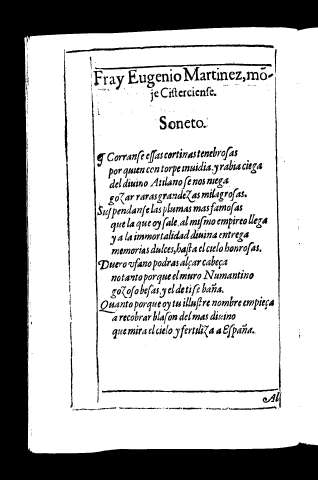 Fray Eugenio Martinez, mõ-
je Ciſtercienſe.
Soneto.
¶ Corranſe eſſas cortinas tenebroſas
por quien con torpe inuidia, y rabia ciega
del diuino Atilano ſe nos niega
gozar raras grandezas milagroſas.
Suſpendanſe las plumas mas famoſas
que la que oy ſale, al miſmo empireo llega
y a la immortalidad diuina entrega
memorias dulces, haſta el cielo honroſas.
Duero vfano podras alçar cabeça
no tanto porque el muro Numantino
gozoſo beſas, y el de ti ſe baña.
Quanto porque oy tu illuſtre nombre empieça
a recobrar blaſon del mas diuino
que mira el cielo, y fertiliza a Eſpaña.
Al